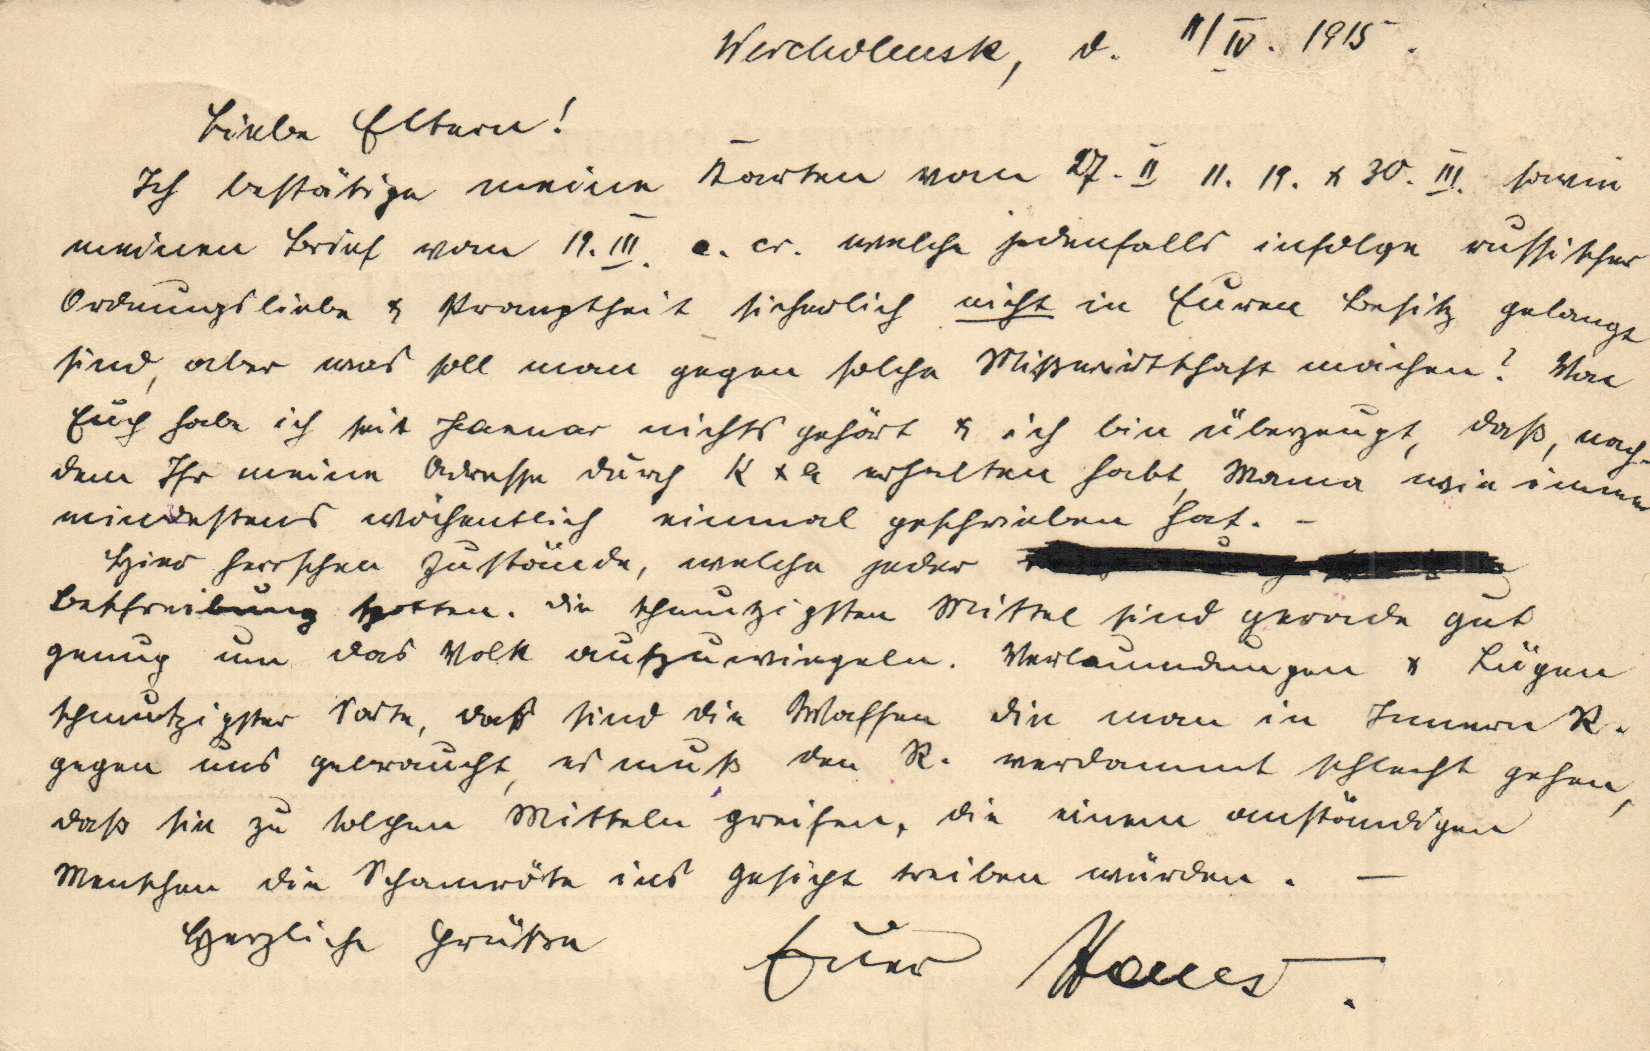 Wercholensk, d. 11/IV. 1915.
Liebe Eltern!
Ich bestätige meine Karten vom 27. II 11. 19. & 30. III. sowie
meinen Brief vom 19. III. a. cr. welche jedenfalls infolge russischer
Ordnungsliebe & Promptheit sicherlich nicht in Euren Besitz gelangt
sind, aber was soll man gegen solche Mißwirtschaft machen? Von
Euch habe ich seit Januar nichts gehört & ich bin überzeugt, daß, nach-
dem Ihr meine Adresse durch K & erhalten habt, Mama wie immer
mindestens wöchentlich einmal geschrieben hat. –
Hier herrschen Zustände, welche jeder
Beschreibung spotten. Die schmutzigsten Mittel sind gerade gut
genug um das Volk aufzuwiegeln. Verleumdungen & Lügen
schmutzigster Sorte, das sind die Waffen die man in Innern R.
gegen uns gebraucht, es muß den R. verdammt schlecht gehen,
daß sie zu solchen Mitteln greifen, die einem anständigen
Menschen die Schamröte ins Gesicht treiben würden. —
Herzliche Grüsse
Euer Hans.